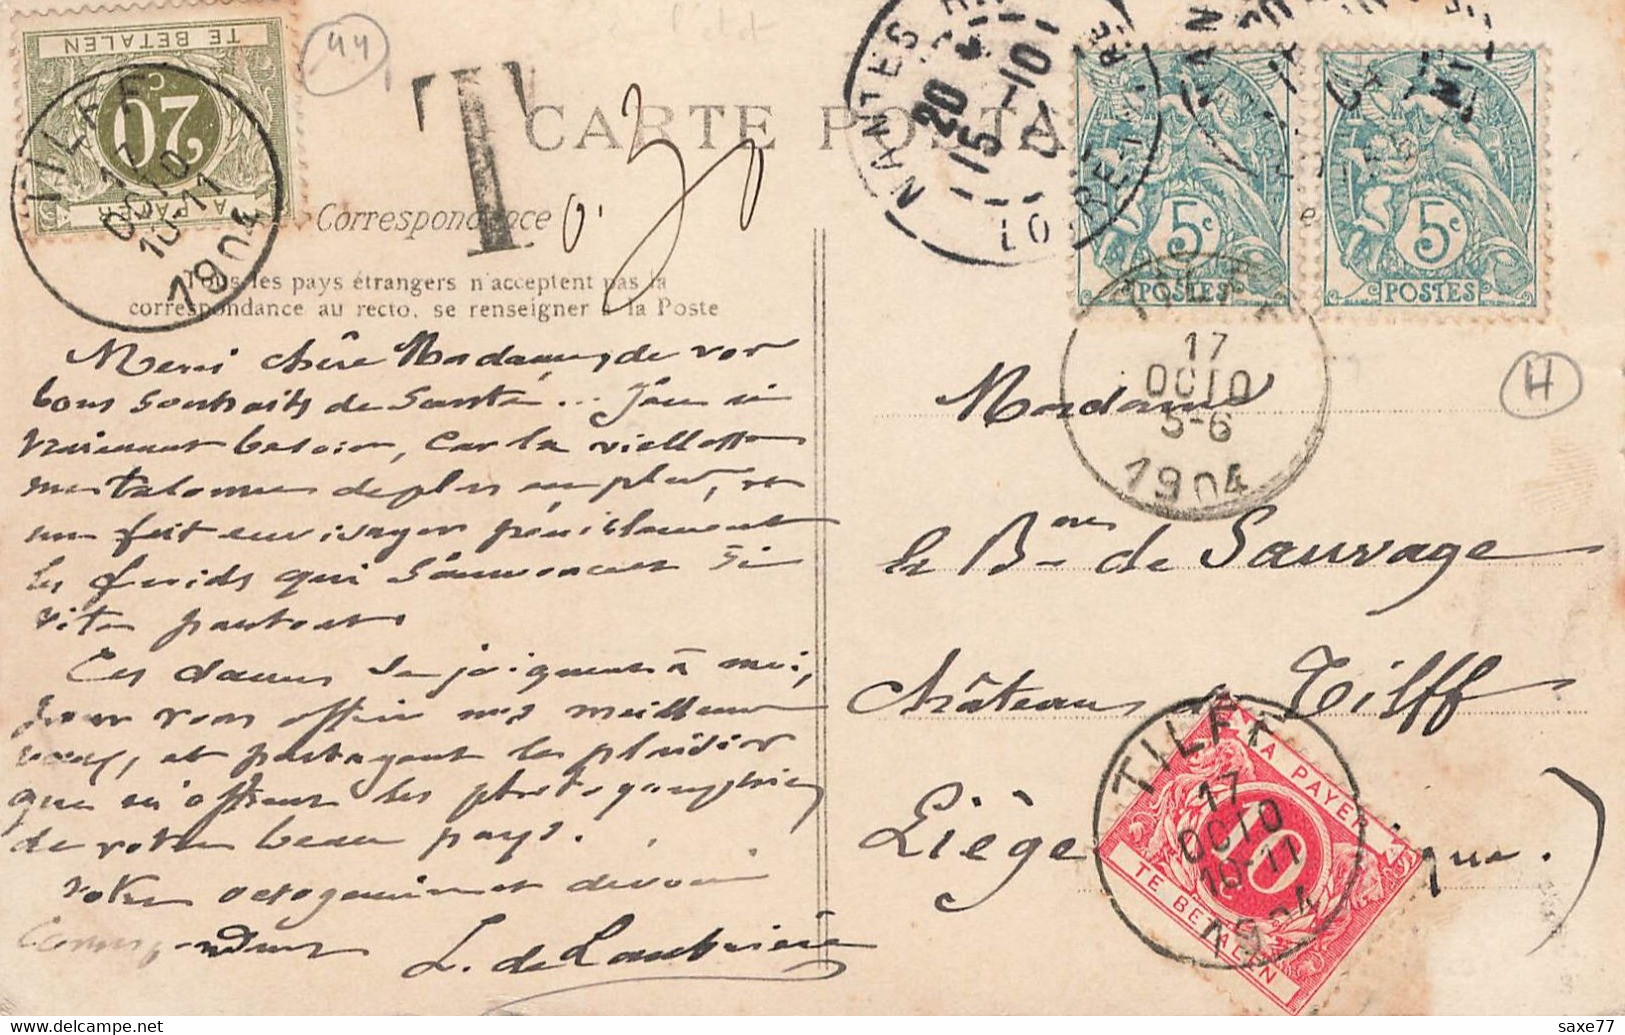 TE BETALEN
20 C
A PAYER
TILFF
17
OCTO
10-11
1904
44
T
CARTE POSTA
0.30
Correspondance
Tous les pays étrangers n'acceptent pas la
correspondance au recto, se renseigner à la Poste
NANTES
20
15 -10
LOIRE
5c
POSTES
5c
POSTES
17
OCTO
5-6
1904
H
Merci chère Madame, de vos
bons souhaits de Santé... J'en ai
vraiment besoin, car la vieillesse
me talonne de plus en plus, et
me fait envisager péniblement
les froids qui s'avancent si
vite partout.
Ces dames se joignent à moi,
pour vous offrir nos meilleurs
vœux, et partagent le plaisir
que m'offrent les photographies
de votre beau pays.
Votre octogénaire et dévoué
Correspondant
L. de Laubrière
Madame
la Bnne de Sauvage
Château de Tilff
Liège
que)
TILFF
17
OCTO
10-11
1904
A PAYER
10
TE BETALEN
saxe77